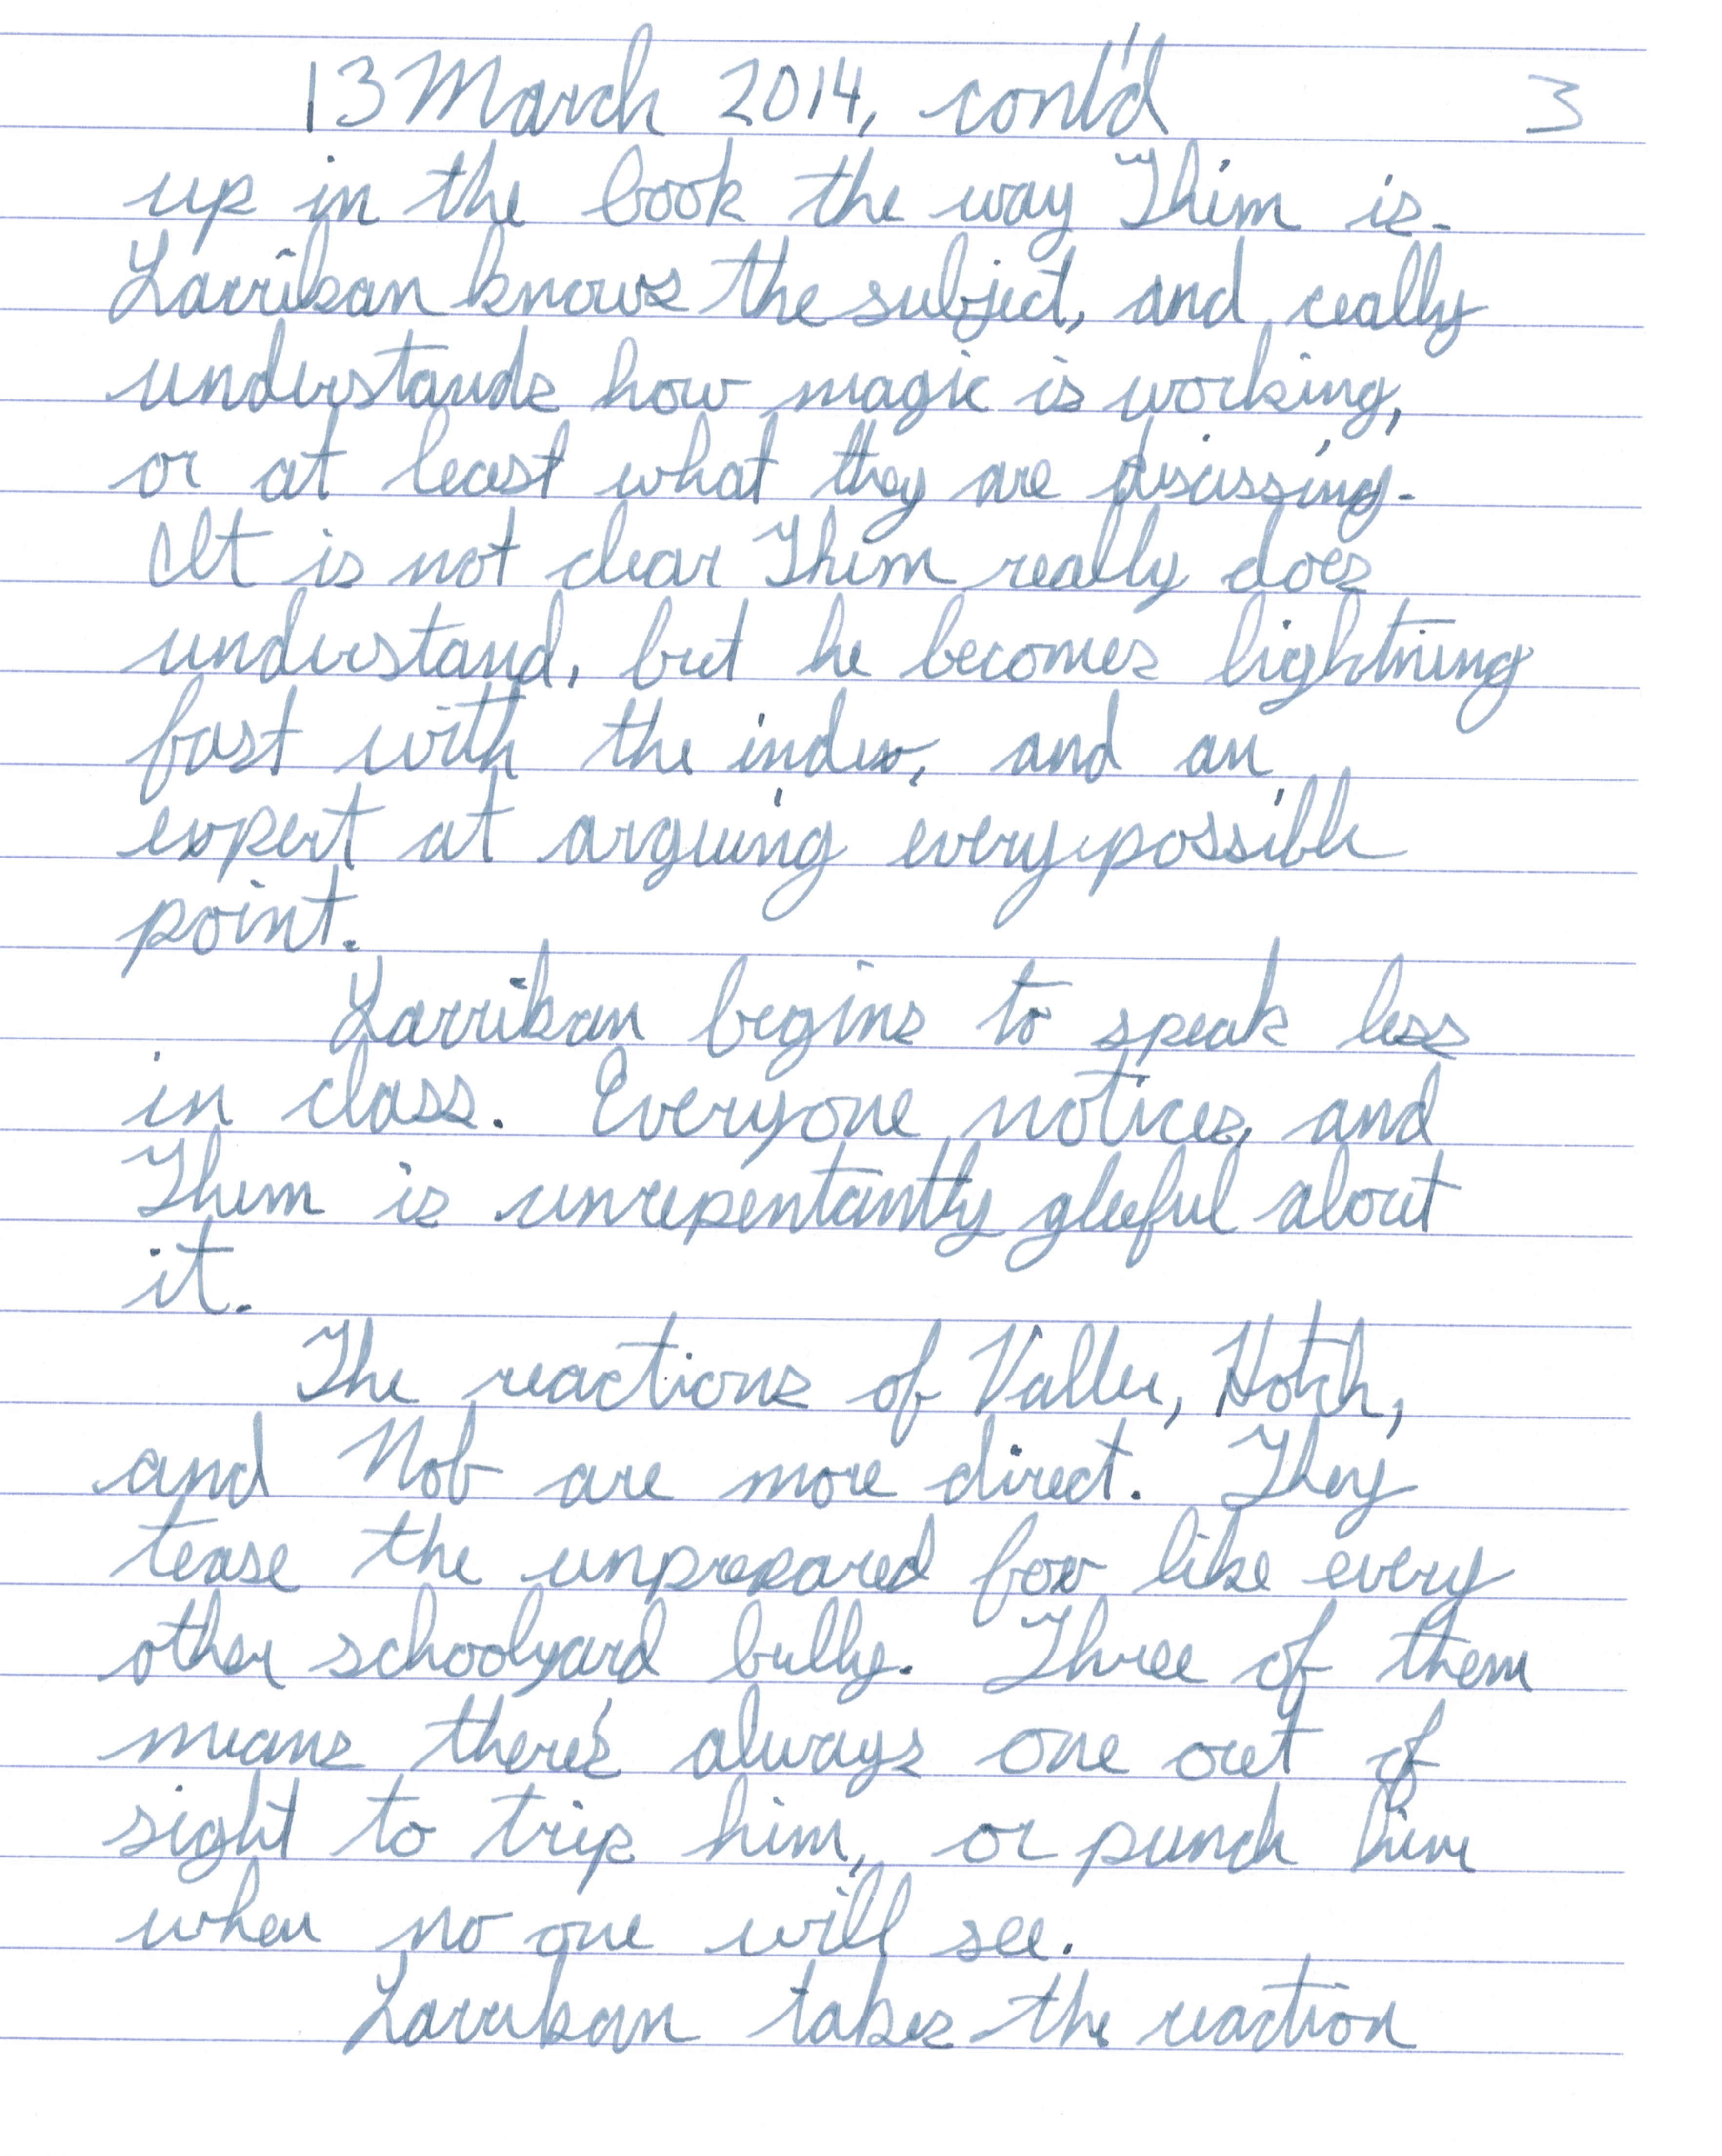 13 March 2014, con'td 3
up in the book the way Thim is.
Larrikan knows the subject, and really
understands how magic is working,
or at least what they are discussing.
It is not clear Thim really does
understand, but he becomes lightning
fast with the index, and an
expert at arguing every possible
point.
Larrikan begins to speak less
in class. Everyone notices, and
Thim is unrepentantly gleeful about
it.
The reactions of Valler, Hotch,
and Nob are more direct. They
tease the unprepared boy like every
other schoolyard bully. Three of them
means there's always one out of
sight to trip him, or punch him
when no one will see.
Larrikan takes the reaction